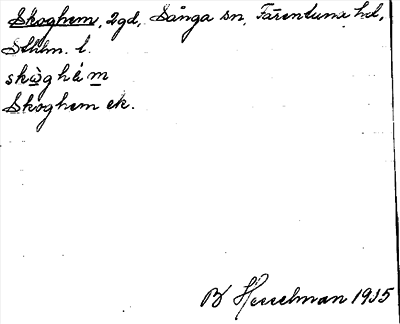 Skoghem, 2gd, Sånga sn, Färentuna hd,
Sthlm. l.
skòghém
Skoghem ek.
B Hesselman 1935